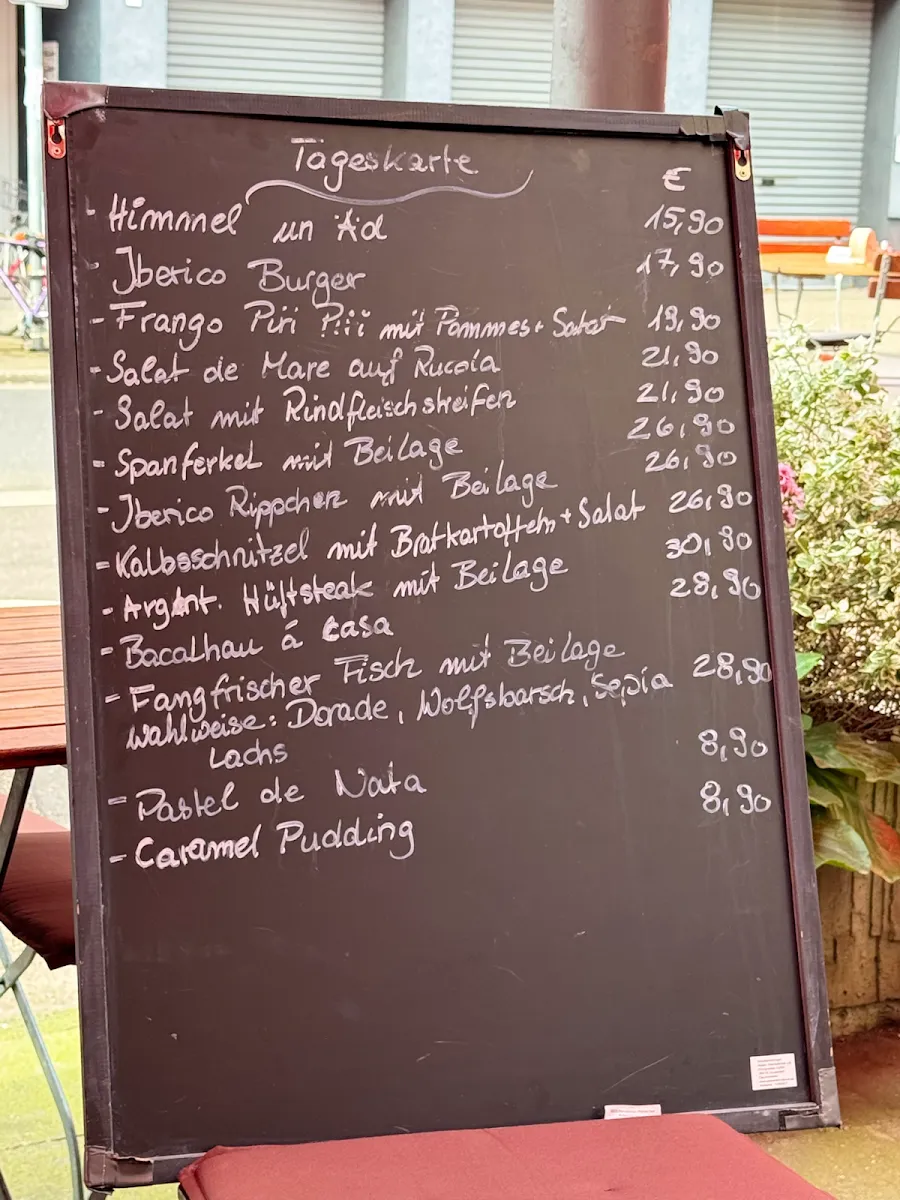 Tageskarte
€
- Himmel un Äd 15,90
- Iberico Burger 17,90
- Frango Piri Piri mit Pommes + Salat 19,90
- Salat de Mare auf Rucola 21,90
- Salat mit Rindfleischstreifen 21,90
- Spanferkel mit Beilage 26,90
- Iberico Rippchen mit Beilage 26,90
- Kalbsschnitzel mit Bratkartoffeln + Salat 26,90
- Argent. Hüftsteak mit Beilage 30,90
- Bacalhau á casa 28,90
- Fangfrischer Fisch mit Beilage 28,90
Wahlweise: Dorade, Wolfsbarsch, Sepia
Lachs
- Pastel de Nata 8,90
- Caramel Pudding 8,90